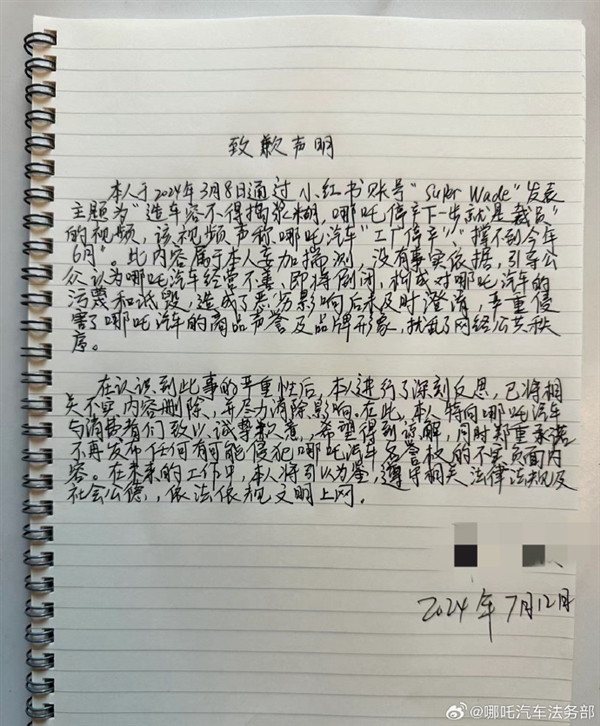 致歉声明
本人于2024年3月8日通过小红书账号"Super Wade"发表
主题为"造车容不得捣浆糊,哪吒停产下一步就是裁员"
的视频,该视频声称哪吒汽车"工厂停产"、"撑不到今年
6月"。此内容属于本人妄加揣测,没有事实依据,引导公
众认为哪吒汽车经营不善,即将倒闭,构成对哪吒汽车的
污蔑和诋毁,造成了恶劣影响后未及时澄清,严重侵
害了哪吒汽车的商品声誉及品牌形象,扰乱了网络公共秩
序。
在认识到此事的严重性后,本人进行了深刻反思,已将相
关不实内容删除,并尽力消除影响。在此,本人特向哪吒汽车
与消费者们致以诚挚歉意,希望得到谅解,同时郑重承诺
不再发布任何有可能侵犯哪吒汽车名誉权的不实负面内
容。在未来的工作中,本人将引以为鉴,遵守相关法律法规及
社会公德,依法依规文明上网。
2024年7月12日
@哪吒汽车法务部